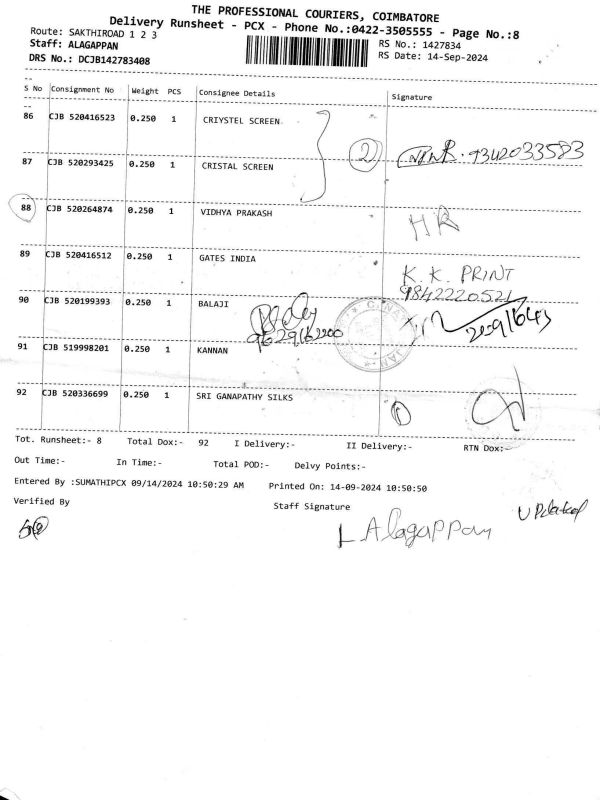 THE PROFESSIONAL COURIERS, COIMBATORE
Delivery Runsheet - PCX - Phone No.:0422-3505555 - Page No.:8
Route: SAKTHIROAD 1 2 3
RS No.: 1427834
Staff: ALAGAPPAN
RS Date: 14-Sep-2024
DRS No.: DCJB142783408
S No Consignment No Weight PCS Consignee Details Signature
86 CJB 520416523 0.250 1 CRIYSTEL SCREEN
2 9342033583
87 CJB 520293425 0.250 1 CRISTAL SCREEN
88 CJB 520264874 0.250 1 VIDHYA PRAKASH HR
89 CJB 520416512 0.250 1 GATES INDIA
K. K. PRINT
9842220521
90 CJB 520199393 0.250 1 BALAJI
9629162200
91 CJB 519998201 0.250 1 KANNAN
92 CJB 520336699 0.250 1 SRI GANAPATHY SILKS
Tot. Runsheet:- 8 Total Dox:- 92 I Delivery:- II Delivery:- RTN Dox:-
Out Time:- In Time:- Total POD:- Delvy Points:-
Entered By :SUMATHIPCX 09/14/2024 10:50:29 AM Printed On: 14-09-2024 10:50:50
Verified By Staff Signature
Updated
L Alagappan